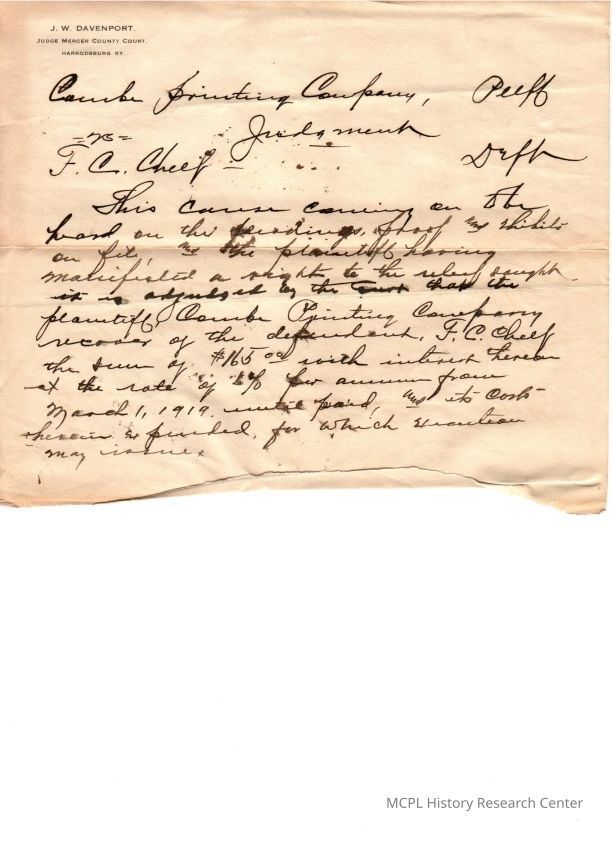 J. W. DAVENPORT.
JUDGE MERCER COUNTY COURT.
HARRODSBURG KY.
Combe Printing Company, Pltff
=vs= Judgment
F. C. Chelf - Deft
This cause coming on to be
heard on the pleadings, proof and exhibits
on file, and the plaintiff having
manifested a right to the relief sought
it is adjudged by the court that the
plaintiff Combe Printing Company
recover of the defendant, F. C. Chelf
the sum of $165.00 with interest hereon
at the rate of 6% per annum from
March 1, 1919, until paid, and its costs
herein expended, for which execution
may issue.
MCPL History Research Center